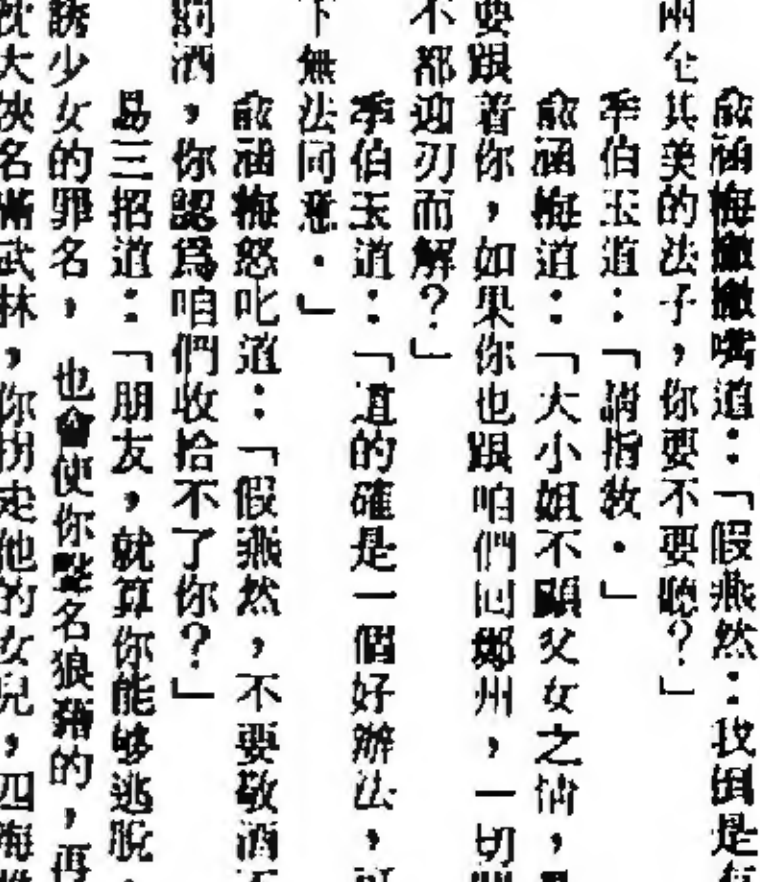 俞涵梅撇撇嘴道：「假燕然：我倒是有
兩全其美的法子，你要不要聽？」
季伯玉道：「請指教．」
俞涵梅道：「大小姐不顧父女之情，
要跟着你，如果你也跟咱們回鄭州，一切問
不都迎刃而解？」
季伯玉道：「這的確是一個好辦法，可
下無法同意．」
俞涵梅怒叱道：「假燕然，不要敬酒不
罰酒，你認爲咱們收拾不了你？」
易三招道：「朋友，就算你能够逃脫，
誘少女的罪名，也會使你聲名狼藉的，再
大俠名滿武林，你拐走他的女兒，四海雖